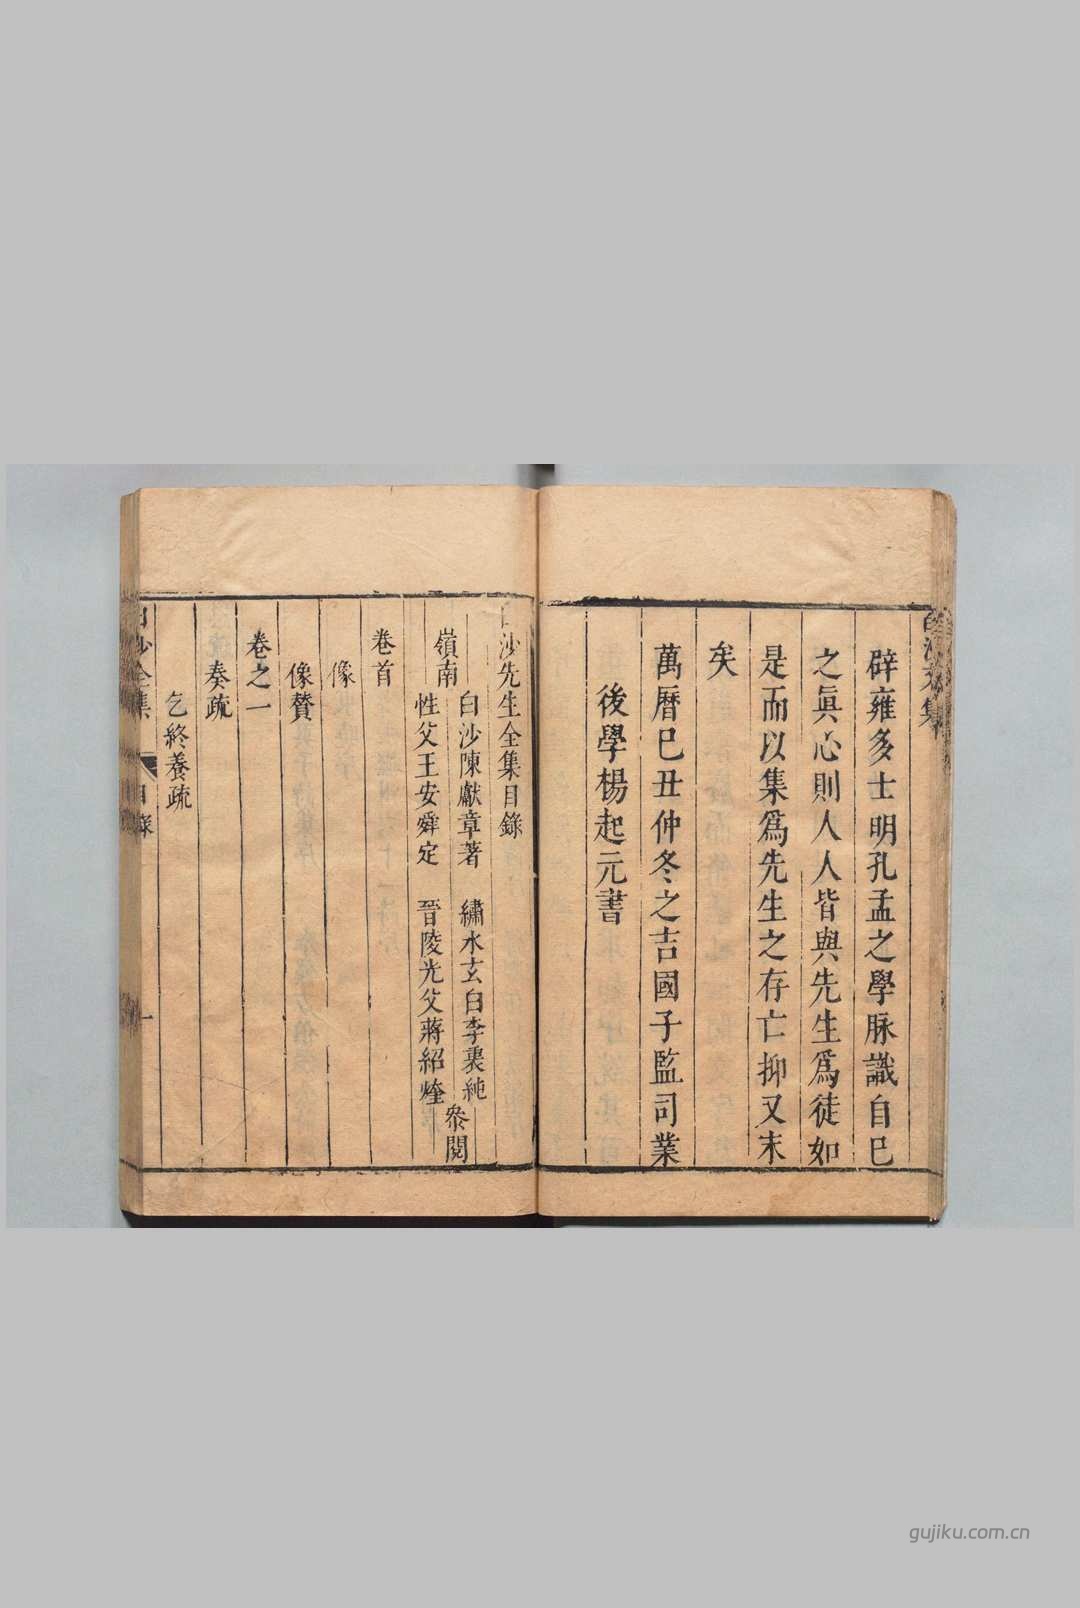 辟雍多士明孔孟之學脉識自巳
之眞心則人人皆與先生爲徒如
是而以集爲先生之存亡抑又末
矣
萬曆巳丑仲冬之吉國子監司業
後學楊起元書
白沙先生全集目錄
嶺南
白沙陳獻章著
繡水玄白李衷純
性父王安舜定
晉陵光父蔣紹煃
叅閱
卷首
像
像贊
卷之一
奏疏
乞終養疏
白沙全集
目錄
一
gujiku.com.cn